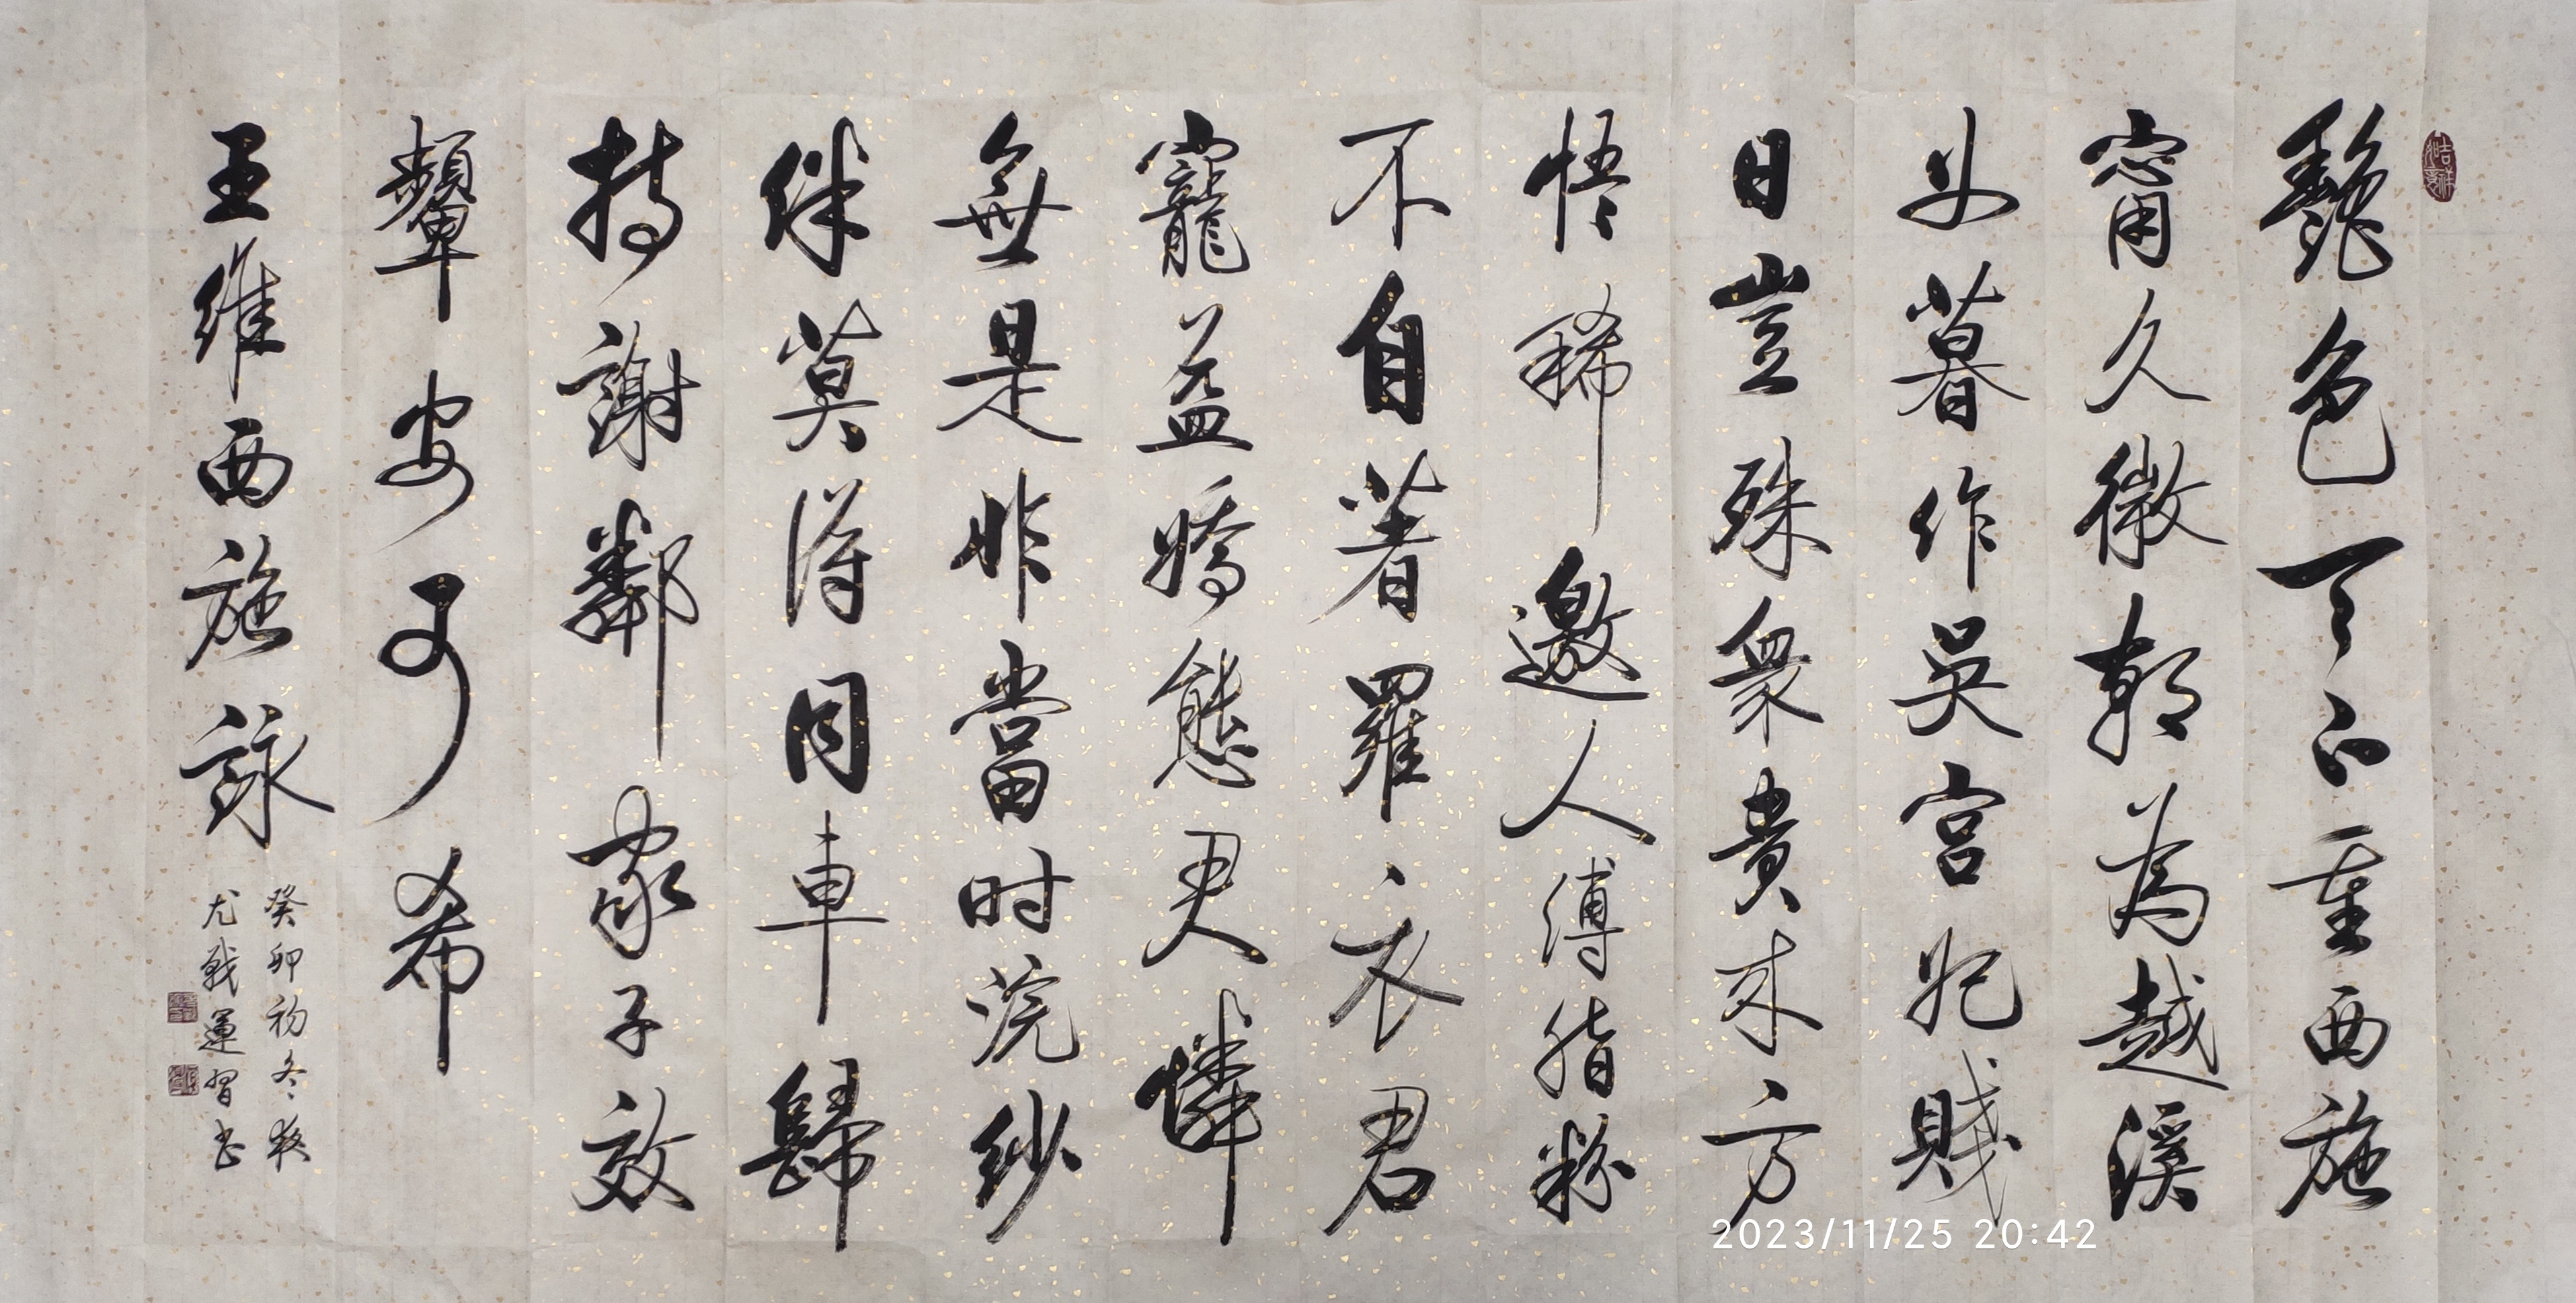 吉祥如意
艷色天下重西施
甯久微朝為越溪
女暮作吳宮妃賤
日豈殊衆貴來方
悟稀邀人傅脂粉
不自著羅衣君
寵益嬌態君憐
無是非當时浣紗
伴莫得同車歸
持謝鄰家子效
顰安可希
王維西施詠
癸卯初冬
尤戰運習书
2023/11/25 20:42